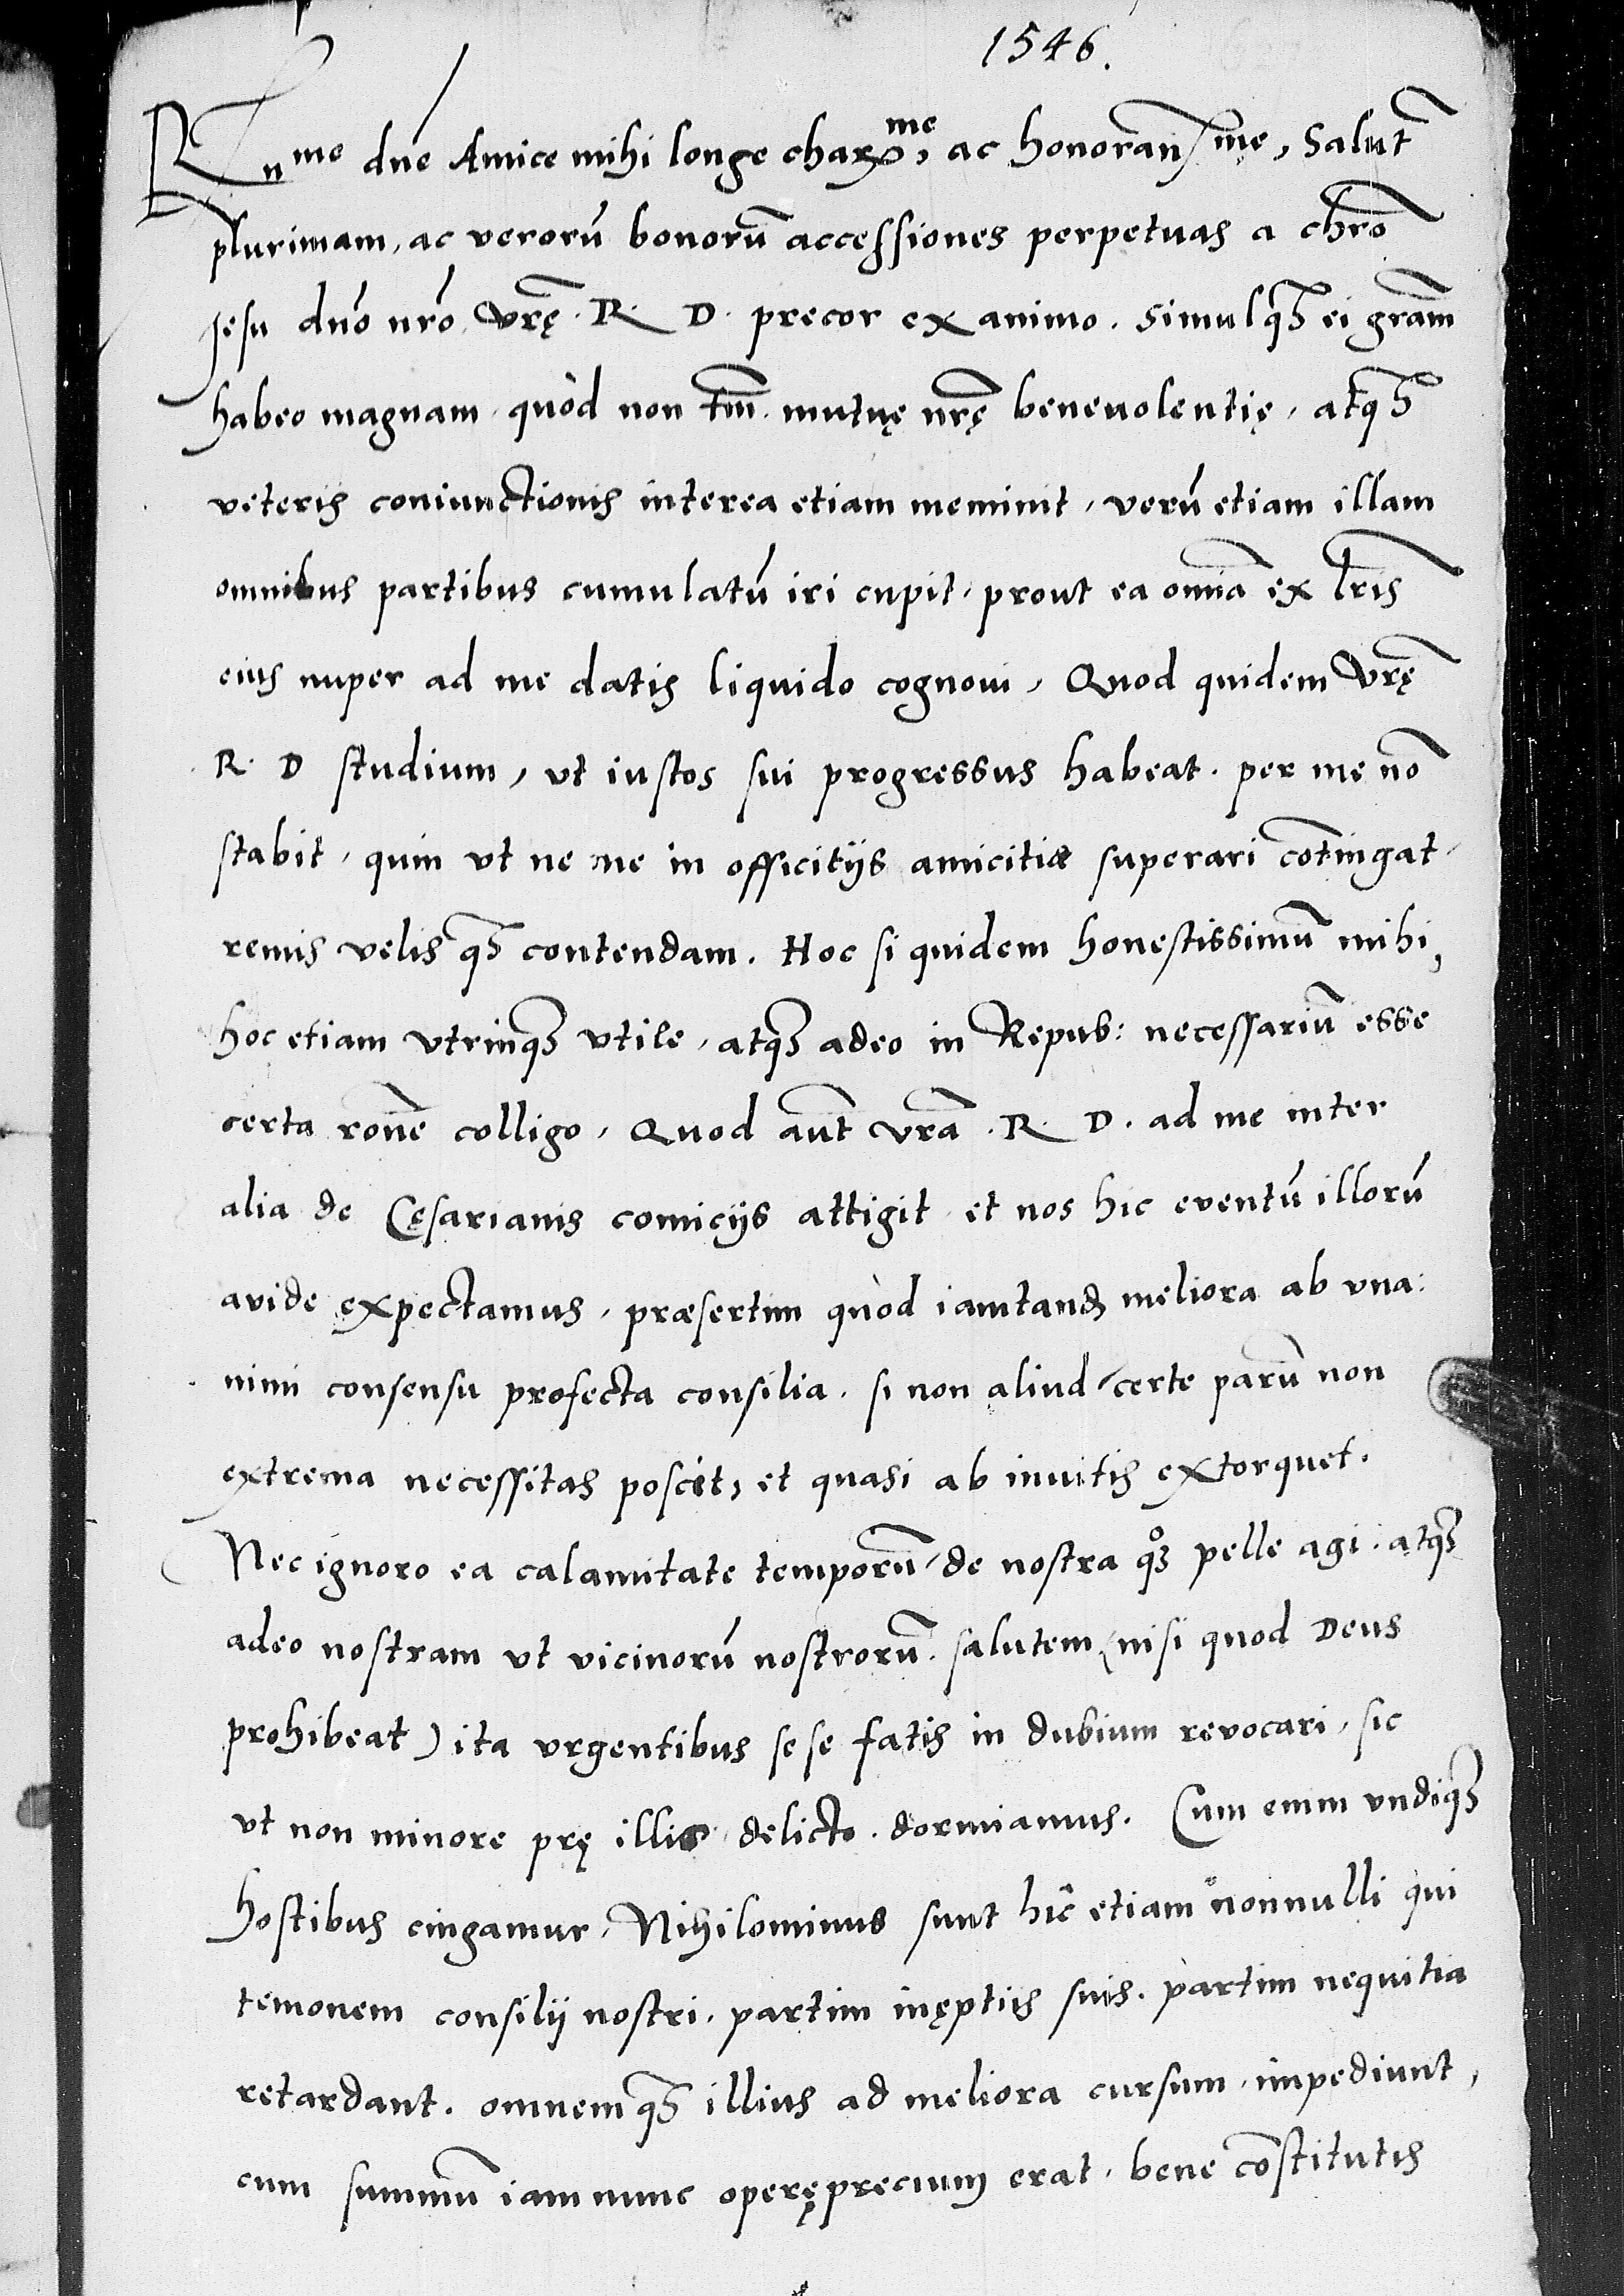 1546.
Rnme dne Amice mihi longe charme, ac honoranme, Salutē
plurimam, ac verorū bonorū accessiones perpetuas a chro
Jesu dno nro vrę. R. D. precor ex animo. simulq₃ ei gram
habeo magnam, quòd non tm̄. mutuę nrę beneuolentię, atq₃
veteris coniunctionis interea etiam meminit, verū etiam illam
omnibus partibus cumulatū iri cupit, prout ea omnia ex lris
eius nuper ad me datis liquido cognoui, Quod quidem vrę
R. D studium, vt iustos sui progressus habeat. per me nō
stabit, quin vt ne me in officitijs amicitiæ superari cōtingat
remis velis q₃ contendam. Hoc si quidem honestissimū mihi,
hoc etiam vtrinq₃ vtile, atq₃ adeo in Repub: necessariū esse
certa rōne colligo, Quod aūt vra. R. D. ad me inter
alia de Cęsarianis comicijs attigit et nos hic euentū illorū
auide expectamus, præsertim quòd iamtand₃ meliora ab vna:
nimi consensu profecta consilia. si non aliud, certe parū non
extrema necessitas poscit, et quasi ab inuitis extorquet.
Nec ignoro ea calamitate temporū, de nostra qo₃ pelle agi. atq₃
adeo nostram vt vicinorū nostrorū. salutem (nisi quod Deus
prohibeat) ita vrgentibus se se fatis in dubium reuocari, sic
vt non minore prę illis delicto. dormiamus. Cum enim vndiq₃
hostibus cingamur, Nihilominus sunt hîc etiam nonnulli qui
temonem consilij nostri, partim inęptiis suis. partim nequitia
retardant. omnem q₃ illius ad meliora cursum impediunt,
cum summū iam nunc operęprecium erat, bene cōstitutis